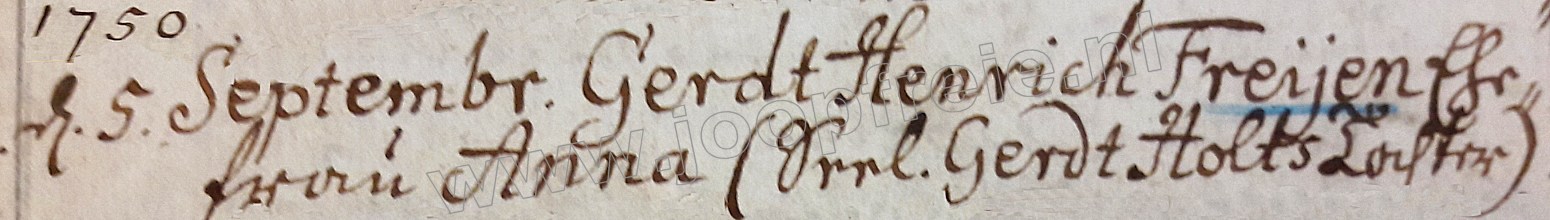 1750
d. 5. Septembr. Gerdt Henrich Freijen Ehe„
frau Anna (Seel. Gerdt Holts Tochter)
www.joopfreie.nl